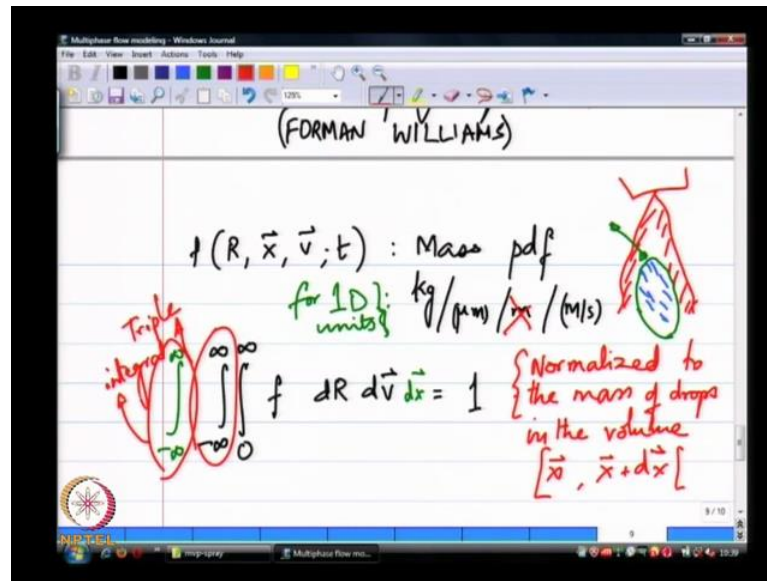 Multiphase flow modeling - Windows Journal
File Edit View Insert Actions Tools Help
129%
(FORMAN WILLIAMS)
f (R, x⃗, v⃗; t) : Mass pdf
for 1D units}: kg/(μm)/m/(m/s)
Triple integral
∞ ∞ ∞
∫ ∫ ∫ f dR dv⃗ dx⃗ = 1
-∞ -∞ 0
{Normalized to
the mass of drops
in the volume
[x⃗, x⃗+dx⃗[
9 / 10
9
NPTEL
mvp-spray
Multiphase flow mo...
10:39